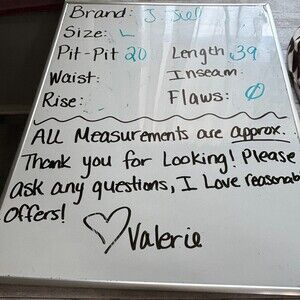 Brand: J. Jill
Size: L
Pit-Pit 20 Length 39
Waist: Inseam:
Rise: Flaws: Ø
All Measurements are approx.
Thank you for Looking! Please
ask any questions, I Love reasonab
Offers!
Valerie